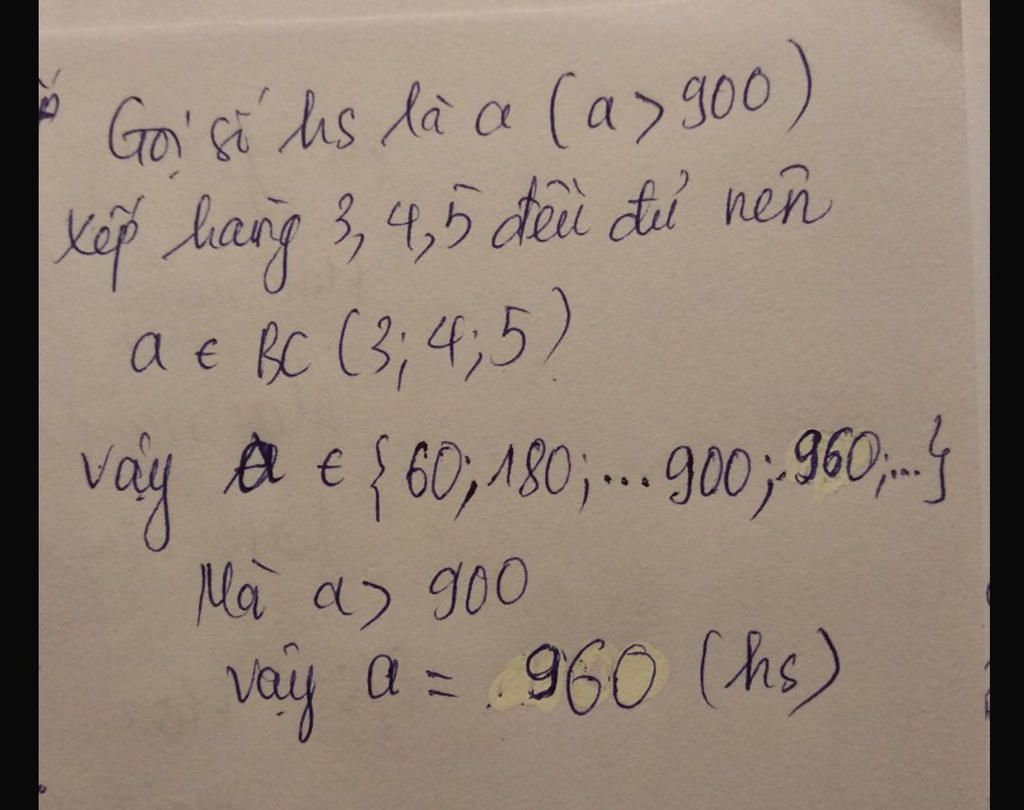 Gọi số hs là a (a > 900)
xếp hàng 3, 4, 5 đều đủ nên
a ∈ BC (3; 4; 5)
vậy a ∈ {60; 180; ... 900; 960; ...}
Mà a > 900
vậy a = 960 (hs)